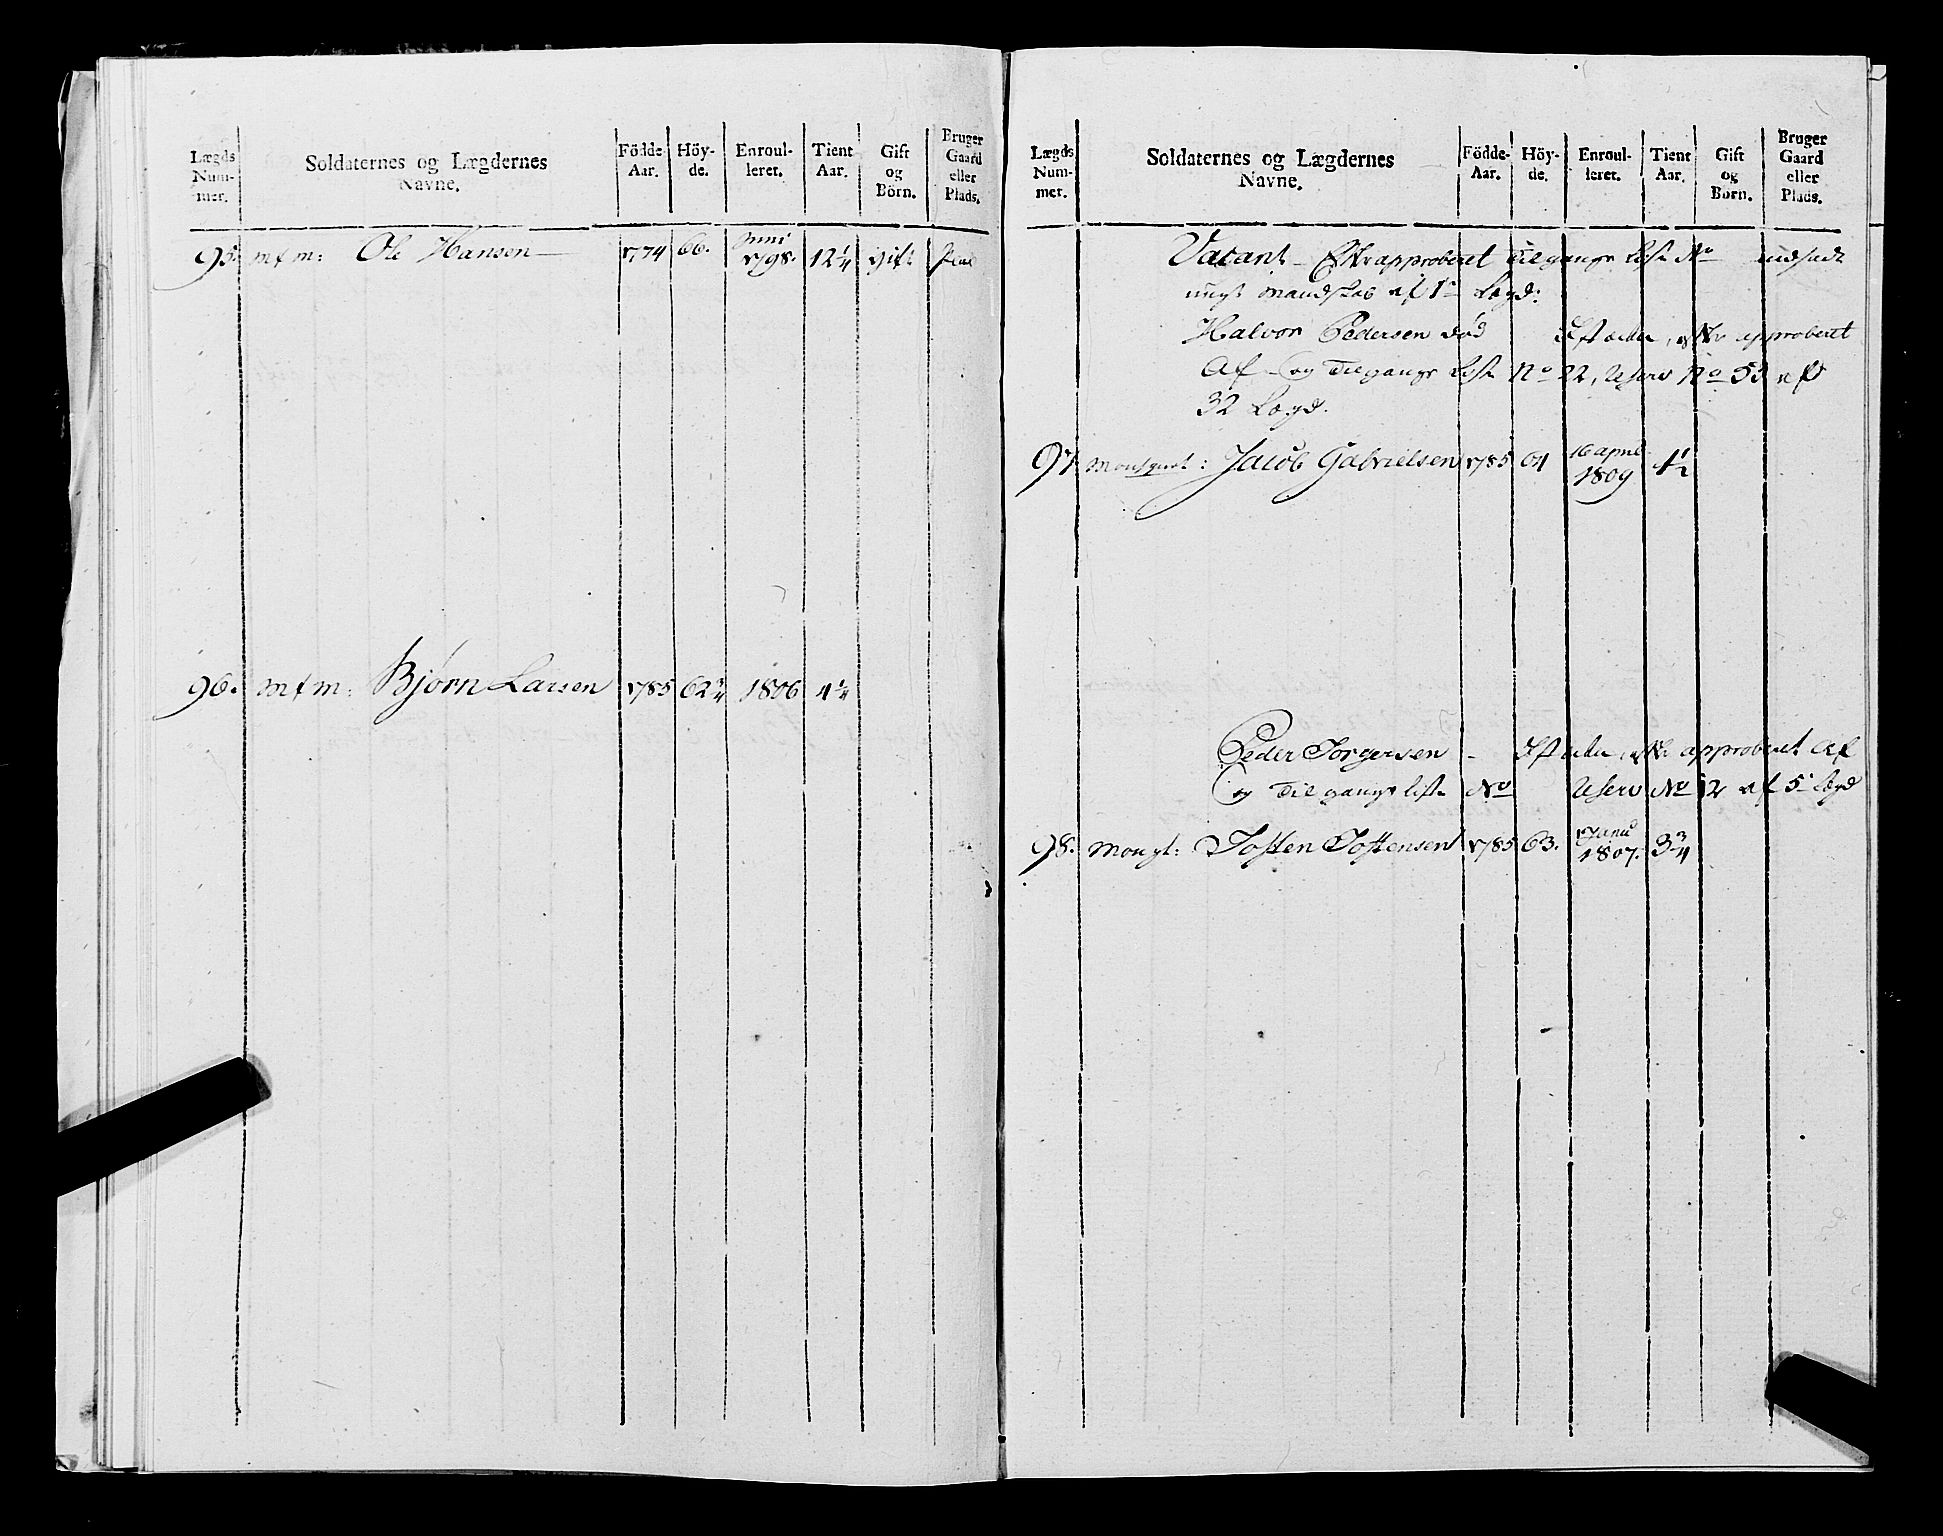 Lægds Num- mer.
Soldaternes og Lægdernes Navne.
Födde- Aar.
Höy- de.
Enroul- leret.
Tient Aar.
Gift og Börn.
Bruger Gaard eller Plads.
95. m f m: Ole Hansen 1774 66. 1798. 12 1/4 gift
96. m f m: Bjørn Larsen 1785 62 1806 4 1/4
Lægds Num- mer.
Soldaternes og Lægdernes Navne.
Födde- Aar.
Höy- de.
Enroul- leret.
Tient Aar.
Gift og Börn.
Bruger Gaard eller Plads.
Vacant approberet Tilgangs List No indsadt
ungt Mandskab af 1te Lægd:
Halvor Pedersen død approberet
Af og Tilgangs List No 22, No 53 af
32 Lægd.
97. Jacob Gabrielsen 1785 64 16 april 1809 1 1/2
Peder Jorgensen approberet Af
og Til gangs liste No No 12 af 5 Lægd
98. Tosten Tostensen 1785 63. 1807. 3 3/4